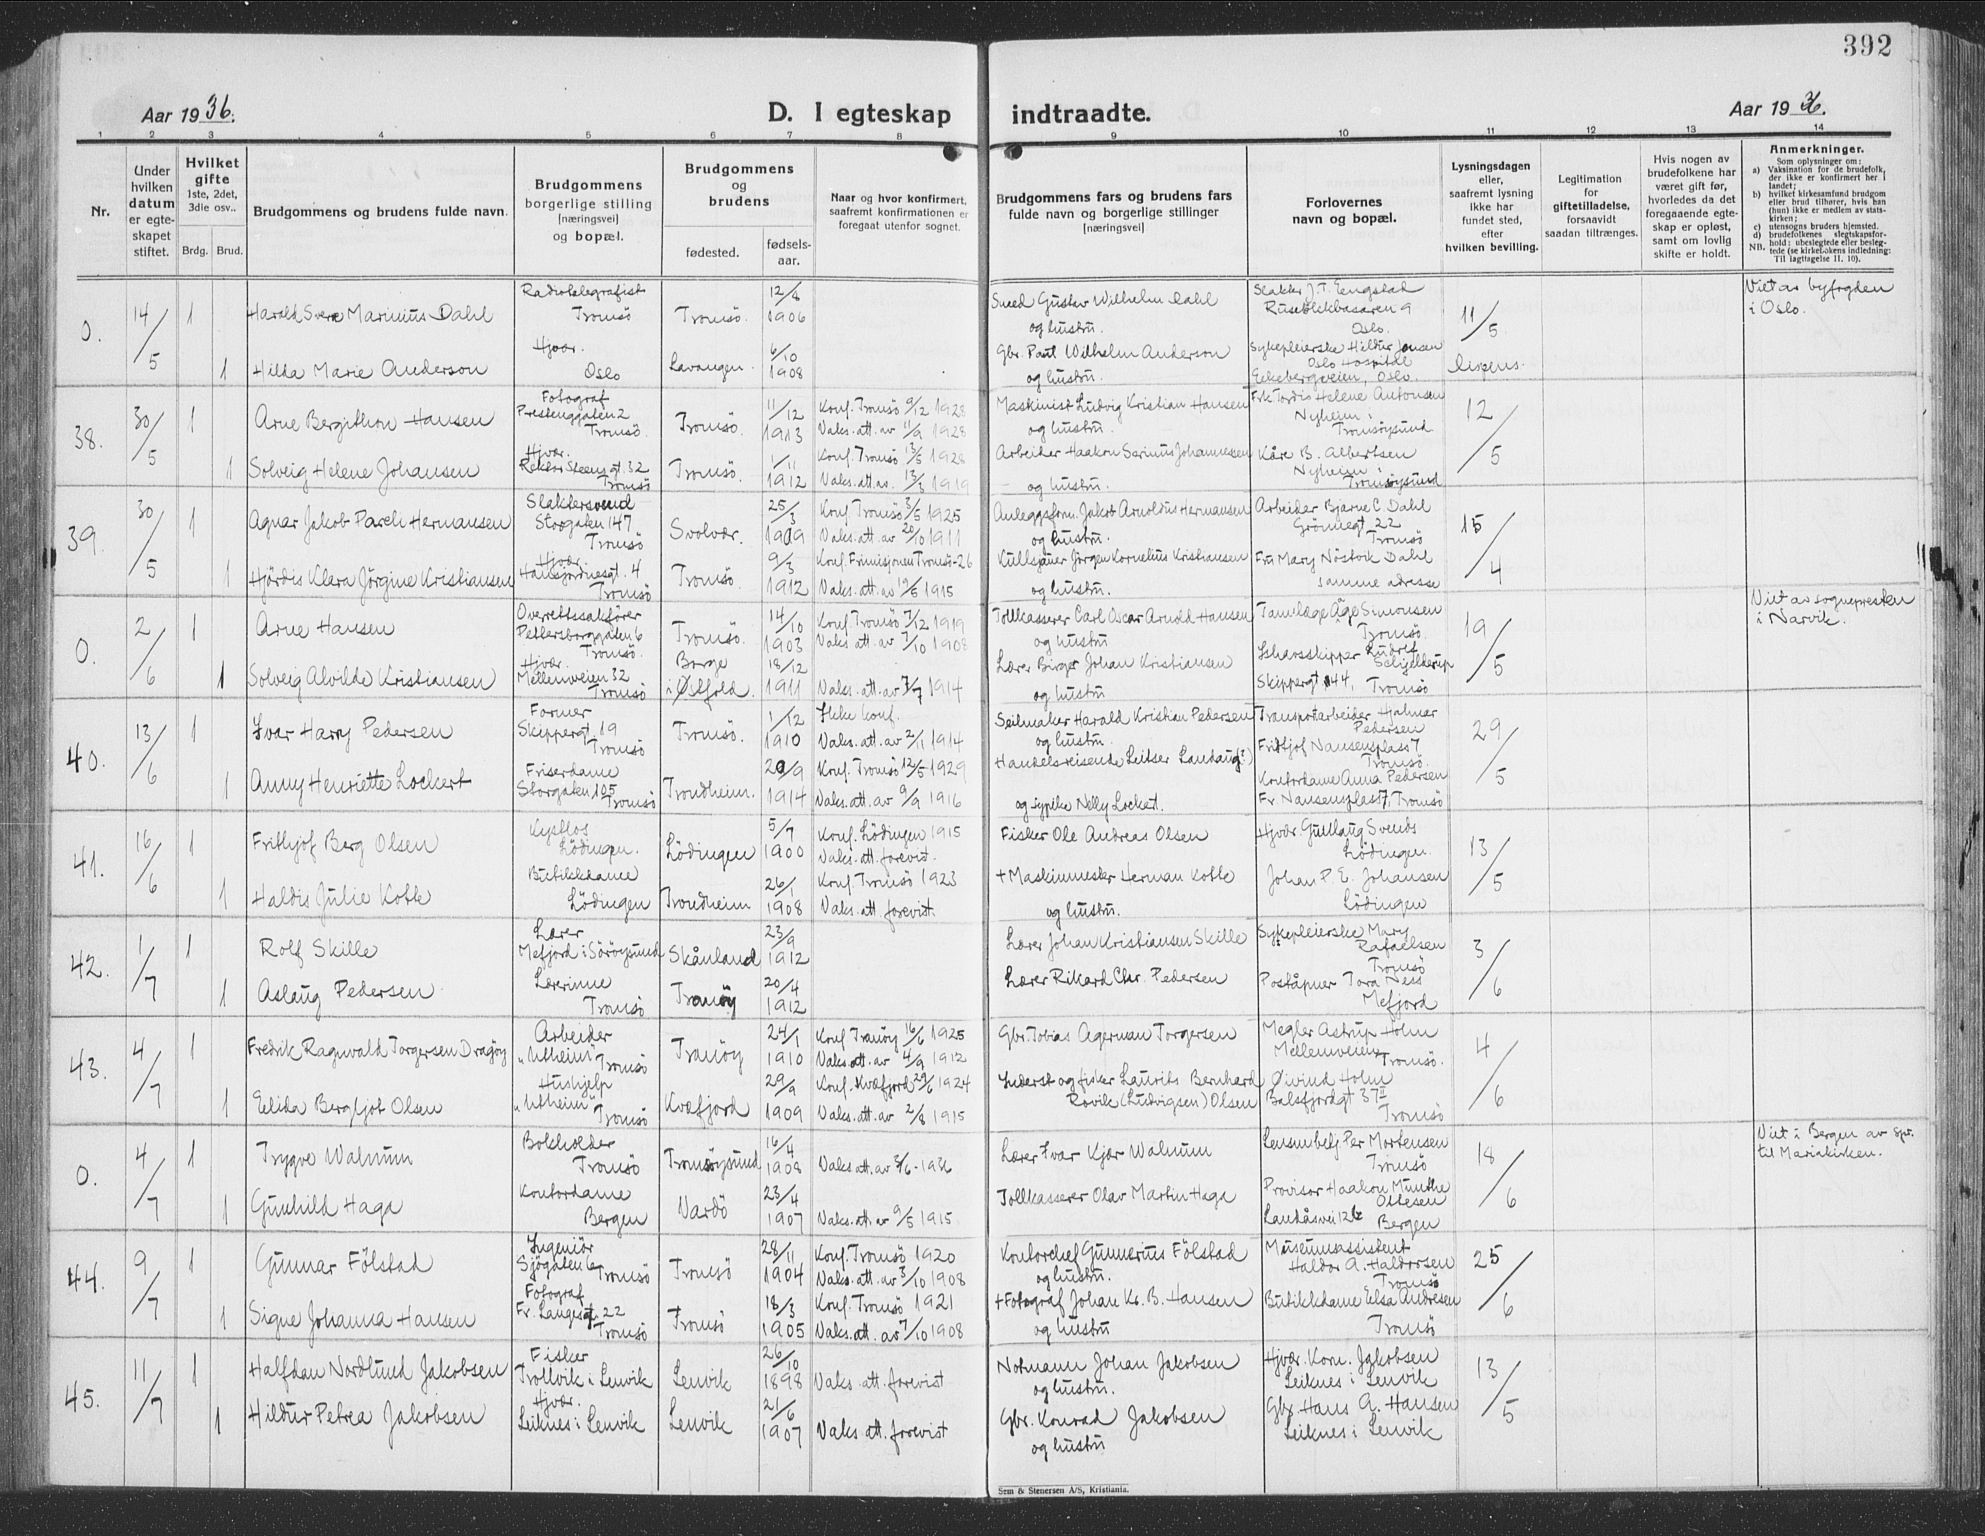 392
Aar 1936.
D. I egteskap indtraadte.
Aar 1936.
1 2 3 4 5 6 7 8 9 10 11 12 13 14
Nr.
Under hvilken datum er egteskapet stiftet.
Hvilket gifte 1ste, 2det, 3die osv..
Brdg. Brud.
Brudgommens og brudens fulde navn.
Brudgommens borgerlige stilling [næringsvei] og bopæl.
Brudgommens og brudens
fødested.
fødselsaar.
Naar og hvor konfirmert, saafremt konfirmationen er foregaat utenfor sognet.
Brudgommens fars og brudens fars fulde navn og borgerlige stillinger [næringsvei]
Forlovernes navn og bopæl.
Lysningsdagen eller, saafremt lysning ikke har fundet sted, efter hvilken bevilling.
Legitimation for giftetilladelse, forsaavidt saadan tiltrænges.
Hvis nogen av brudefolkene har været gift før, hvorledes da det foregaaende egteskap er opløst, samt om lovlig skifte er holdt.
Anmerkninger.
Som oplysninger om:
a) Vaksination for de brudefolk, der ikke er konfirmert her i landet;
b) hvilket kirkesamfund brudgom eller brud tilhører, hvis han (hun) ikke er medlem av statskirken;
c) utensogns bruders hjemsted.
d) brudefolkenes slegtskapsforhold: ubeslegtede eller beslegtede (se kirkebokens indledning:
NB. Til iagttagelse II. 10).
0. 14/5 1 Harald Sverre Marinius Dahl Radiotelegrafist Tromsö Tromsö. 12/8 1906 Smed Gustav Wilhelm Dahl og hustru. Slakter J. T. Engstad Ruseløkbasaren 9 Oslo. 11/5 Viet av byfogden i Oslo.
1 Hilda Marie Anderson Hjvær. Oslo Lavangen. 6/10 1908 Gbr. Paul Wilhelm Anderson og hustru. Sykepleierske Hildur Jensen Oslo Hospital Eekebergveien, Oslo. dispens.
38. 30/5 1 Arne Bergithon Hansen Fotograf Prestenggaten 2 Tromsö. Tromsö. 11/12 1913 Konf. Tromsö 9/12 1928 Vaks. att. av 11/9 1928 Maskinist Ludvig Kristian Hansen og hustru. Frk Tordis Helene Antonsen Nyheim i Tromsöysund 12/5
1 Solveig Helene Johansen Hjvær. Rektor Steens gt. 32 Tromsö Tromsö. 1/11 1912 Konf. Tromsö 13/5 1928 Vaks. att. av. 13/8 1919 Arbeider Haakon Serinus Johannessen og hustru. Kåre B. Albertsen Nyheim i Tromsöysund
39. 30/5 1 Agnar Jakob Pareli Hermansen Slaktersvend Storgaten 147 Tromsö Svolvær. 25/3 1909 Konf. Tromsö 3/5 1925 Vaks. att. av 20/10 1911 Anleggsform. Jakob Arnoldus Hermansen og hustru. Arbeider Bjarne C Dahl Grönnegt 22 Tromsö 15/4
1 Hjördis Klara Jörgine Kristiansen Hjvær. Hansjordnesgt. 4 Tromsö Tromsö 9/3 1912 Konf. Frimisjonen Tromsö-26 Vaks. att. av 19/5 1915 Kullsjauer Jörgen Kornelius Kristiansen og hustru. Fru Mary Nöstvik Dahl samme adresse
0. 2/6 1 Arne Hansen Overrettssakförer Pettersborggaten 6 Tromsö. Tromsö. 14/10 1903 Konf. Tromsö 7/12 1919 Vaks. att. av 7/10 1908 Tollkasserer Carl Oscar Arnold Hansen og hustru Tannlæge Åge Simonsen Tromsö. 19/5 Viet av sognepresten i Narvik.
1 Solveig Alvilde Kristiansen Hjvær. Mellemveien 32 Tromsö Borge i Østfold. 18/12 1911 Vaks. att. av 7/7 1914 Lærer Birger Johan Kristiansen og hustru Ishavsskipper Rudolf Schjelderup Skippergt 44, Tromsö
40. 13/6 1 Ivar Harry Pedersen Former Skippergt. 19 Tromsö Tromsö. 1/12 1910 Ikke konf. Vaks. att. av 2/11 1914 Seilmaker Harald Kristian Pedersen og hustru. Transportarbeider Hjalmar Pedersen Fridtjof Nansensplass 7 Tromsö. 29/5
1 Anny Henriette Lockert Friserdame Storgaten 105 Tromsö Trondheim. 20/9 1914 Konf. Tromsö 12/5 1929 Vaks. att. av 9/9 1916 Handelsreisende Leitser Landau(?) og sypike Nelly Lockert. Kontordame Anna Pedersen Fr. Nansensplass 7, Tromsö
41. 16/6 1 Frithjof Berg Olsen Kystlos Lödingen. Lödingen 5/7 1900 Konf. Lödingen 1915 Vaks. att. forevist. Fisker Ole Andreas Olsen Hjvær. Gunlaug Svends Lödingen. 13/5
1 Haldis Julie Kotte Butikkdame Lödingen Trondheim 26/1 1908 Konf. Tromsö 1923 Vaks. att. forevist. + Maskinmester Herman Kotte og hustru. Johan P. E. Johansen Lödingen
42. 1/7 1 Rolf Skille Lærer Mefjord i Söröysund Skånland 23/9 1912 Lærer Johan Kristiansen Skille Sykepleierske Mary Rafaelsen Tromsö 3/6
1 Aslaug Pedersen Lærerinne Tromsö Tranöy 20/4 1912 Lærer Rikard Chr. Pedersen Poståpner Tora Ness Mefjord
43. 4/7 1 Fredrik Ragnvald Torgersen Dragöy Arbeider "Utheim" Tromsö Tranöy 24/1 1910 Konf. Tranöy 16/6 1925 Vaks. att. av 4/9 1912 Gbr. Tobias Agerman Torgersen Megler Astrup Holm Mellemveien Tromsö. 4/6
1 Elida Bergljot Olsen Hushjelp "Utheim" Tromsö Kvæfjord 29/9 1909 Konf. Kvæfjord 29/6 1924 Vaks. att. av 2/8 1915 Inderst og fisker Laurits Bernhard Rovik (Ludvigsen) Olsen Öivind Holm Balsfjordgt 37 II Tromsö
0. 4/7 1 Trygve Walnum Bokholder Tromsö Tromsöysund 16/4 1908 Vaks att. av 3/6 - 1936 Lærer Ivar Kjær Walnum Lensm betj Per Mortensen Tromsö 18/6 Viet i Bergen av spr. til Mariakirken.
1 Gunhild Haga Kontordame Bergen Vardö 23/4 1907 Vaks. att. av 9/5 1915. Tollkasserer Olav Martin Haga Provisor Haakon Munthe Ottesen Landåsvei 12 b Bergen
44. 9/7 1 Gunnar Fölstad Ingeniör Sjögaten 6 Tromsö Tromsö 28/11 1904 Konf. Tromsö 1920 Vaks. att. av 3/10 1908 Kontorchef Gunnerius Fölstad og hustru. Museumsassistent Haldor A. Haldorsen Tromsö 25/6
1 Signe Johanna Hansen Fotograf Fr. Langesgt. 22 Tromsö Tromsö 18/3 1905 Konf. Tromsö 1921 Vaks. att. av 7/10 1908 + Fotograf Johan Kr. B. Hansen og hustru Butikkdame Elsa Andresen Tromsö
45. 11/7 1 Halfdan Nordlund Jakobsen Fisker Trollvik i Lenvik Lenvik 26/10 1898 Vaks. att. forevist Notmann Johan Jakobsen og hustru. Hjvær. Korn. Jakobsen Leiknes i Lenvik 13/5
1 Hildur Petrea Jakobsen Hjvær. Leiknes i Lenvik Lenvik 21/6 1907 Vaks att. forevist Gbr. Konrad Jakobsen og hustru Gbr. Hans A. Hansen Leiknes i Lenvik
Sem & Stenersen A/S, Kristiania.